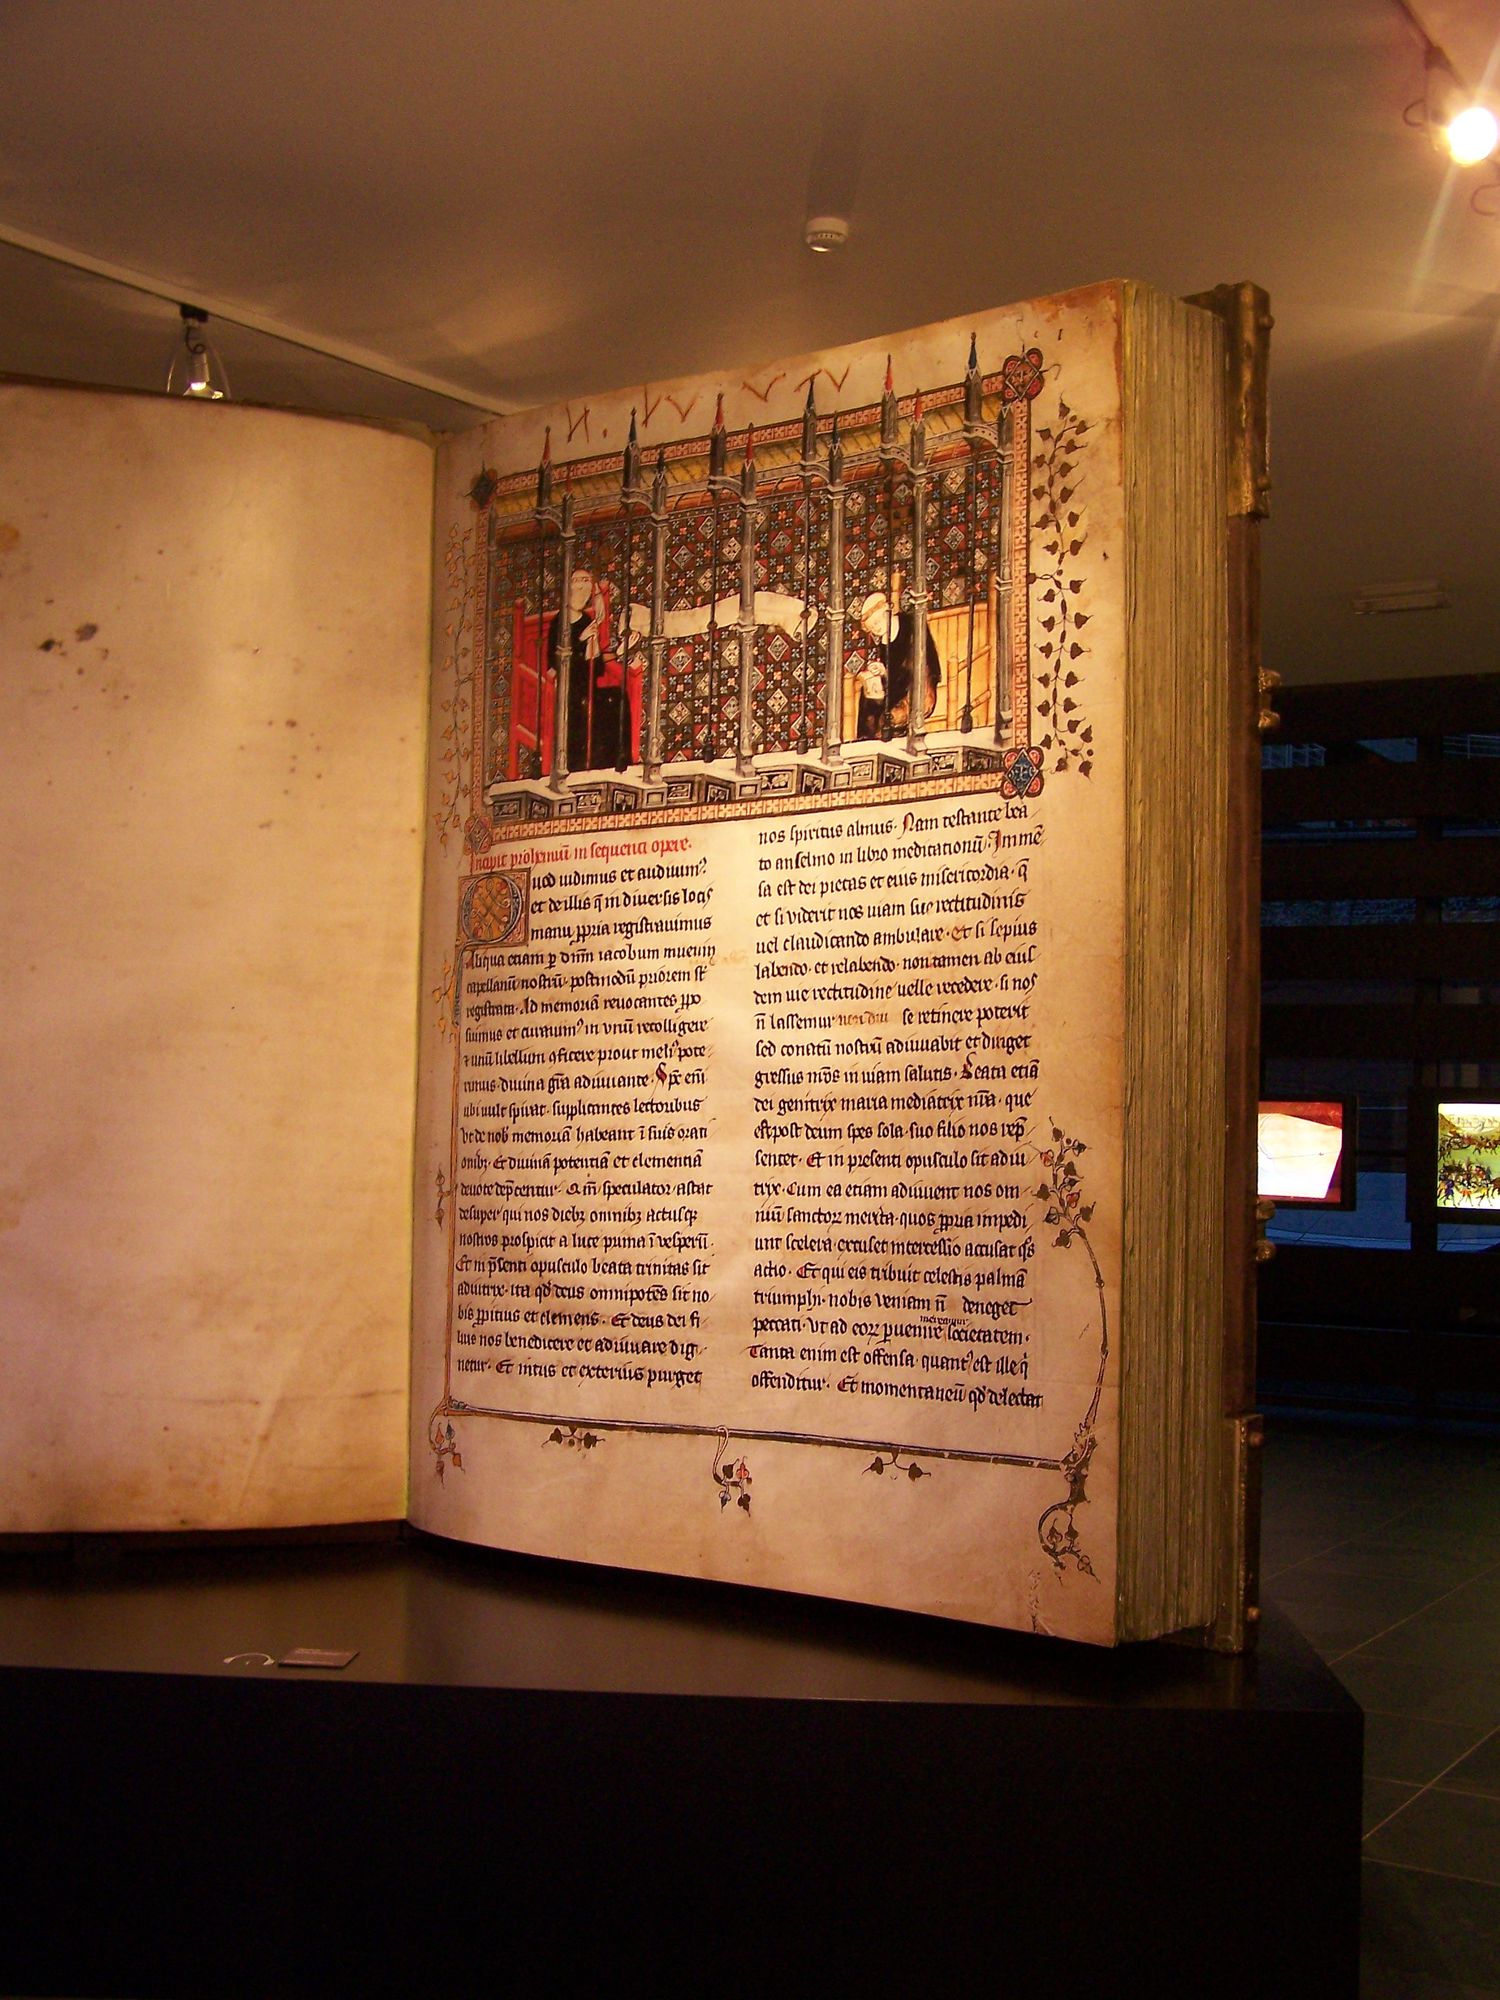 Incipit prohemiū in sequenti opere.
Quod uidimus et audiuim᷒
et de illis q̄ in diuersis locis
manu ꝓpria registrauimus
Aliqua etiam ꝑ dn̄m iacobum
capellanū nostrū· postmodū priorem
registrata· Ad memoriā reuocantes
et curauim᷒ in vnū recolligere
⁊ unū libellum ꝯficere prout meli᷒ pote-
rimus· diuina gr̄a adiuuante· Sp̄c eni᷒
ubi uult spirat· supplicantes lectoribus
Vt de nob᷒ memoriā habeant ī suis orati
onibꝫ· Et diuinā potentiā et clementiā
deuote dep̄centur· Qm̄ speculator astat
desuper qui nos diebꝫ omnibꝫ actusqꝫ
nostros prospicit a luce prima ī vesperū·
Et in p̄senti opusculo beata trinitas sit
adiutrix· ita qd̓ deus omnipotēs sit no-
bis ꝓpitius et clemens· Et deus dei fi-
lius nos benedicere et adiuuare dig-
netur· Et intus et exterius purget
nos spiritus almus· Nam testante bea-
to anselmo in libro meditationū· Immē-
sa est dei pietas et eius misericordia· q̄
et si viderit nos uiam sue rectitudinis
uel claudicando ambulare· Et si sepius
labendo· et relabendo· non tamen ab eius-
dem uie rectitudine uelle recedere· si nos
n̄ lassemur se retinere poterit
sed conatū nostrū adiuuabit et diriget
gressus nr̄os in uiam salutis· Beata etiā
dei genitrix maria mediatrix nr̄a· que
est post deum spes sola· suo filio nos rep̄-
sentet· Et in presenti opusculo sit adiu-
trix· Cum ea etiam adiuuent nos om-
niū sanctoꝝ merita· quos ꝓpria impedi-
unt scelera· excuset intercessio accusat q̄s
actio· Et qui eis tribuit celestis palmā
triumphi· nobis veniam n̄ deneget
peccati· Vt ad eoꝝ ꝑuenire mereamur societatem·
Tanta enim est offensa· quant᷒ est ille q̄
offenditur· Et momentaneū qd̓ delectat